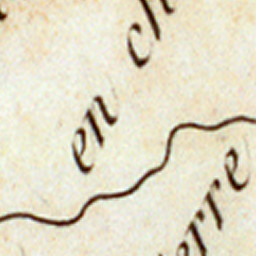 en ch
erre